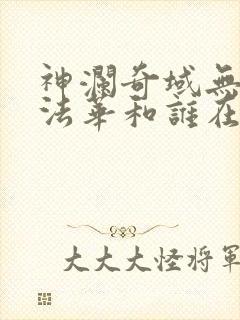 神瀾奇域無
法華和誰在
大大大怪将軍